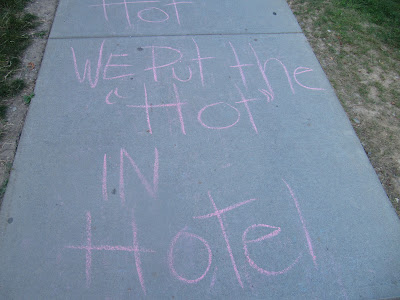 Hot
WE Put the
"Hot"
IN
Hotel